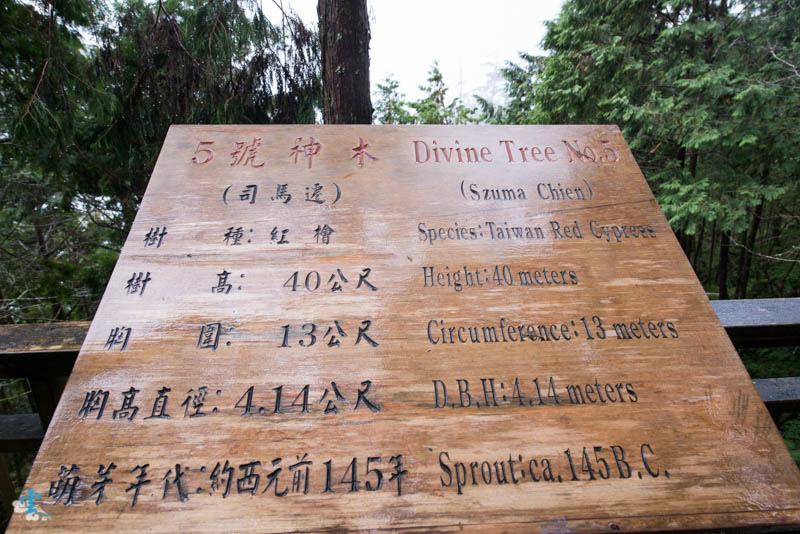 5號神木 Divine Tree No.5
(司馬遷) (Szuma Chien)
樹種:紅檜 Species:Taiwan Red Cypress
樹高: 40公尺 Height:40 meters
胸圍: 13公尺 Circumference:13 meters
胸高直徑:4.14公尺 D.B.H:4.14 meters
萌芽年代:約西元前145年 Sprout:ca.145B.C.
雲